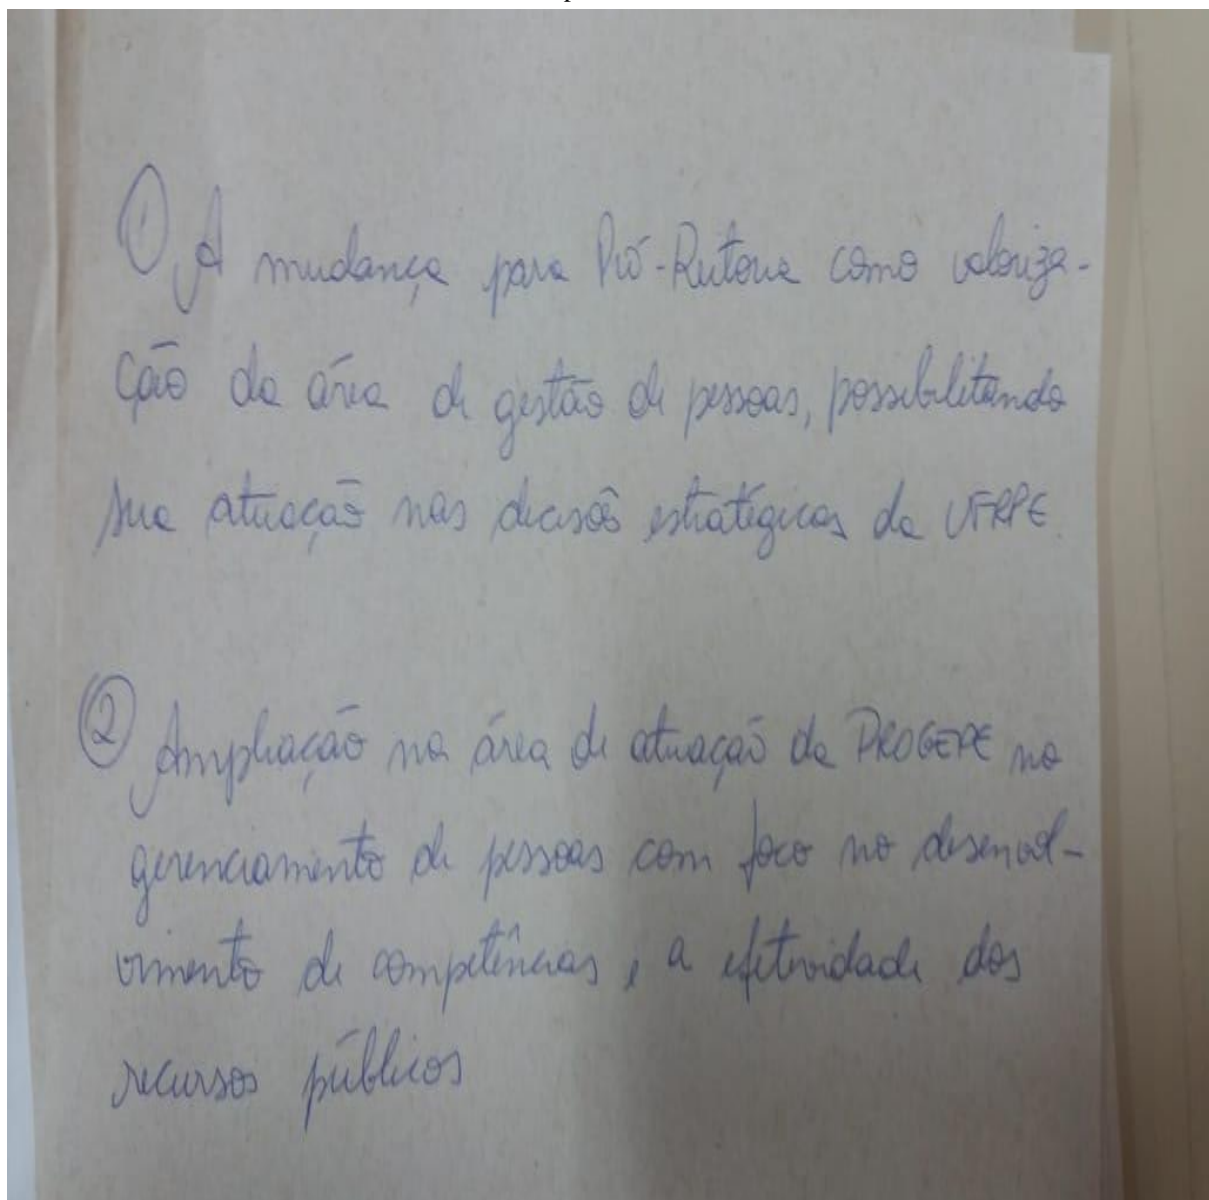 ① A mudança para Pró-Reitoria como valoriza-
ção da área de gestão de pessoas, possibilitando
sua atuação nas decisões estratégicas da UFRPE.
② Ampliação na área de atuação da PROGEPE no
gerenciamento de pessoas com foco no desenvol-
vimento de competências, a efetividade dos
recursos públicos